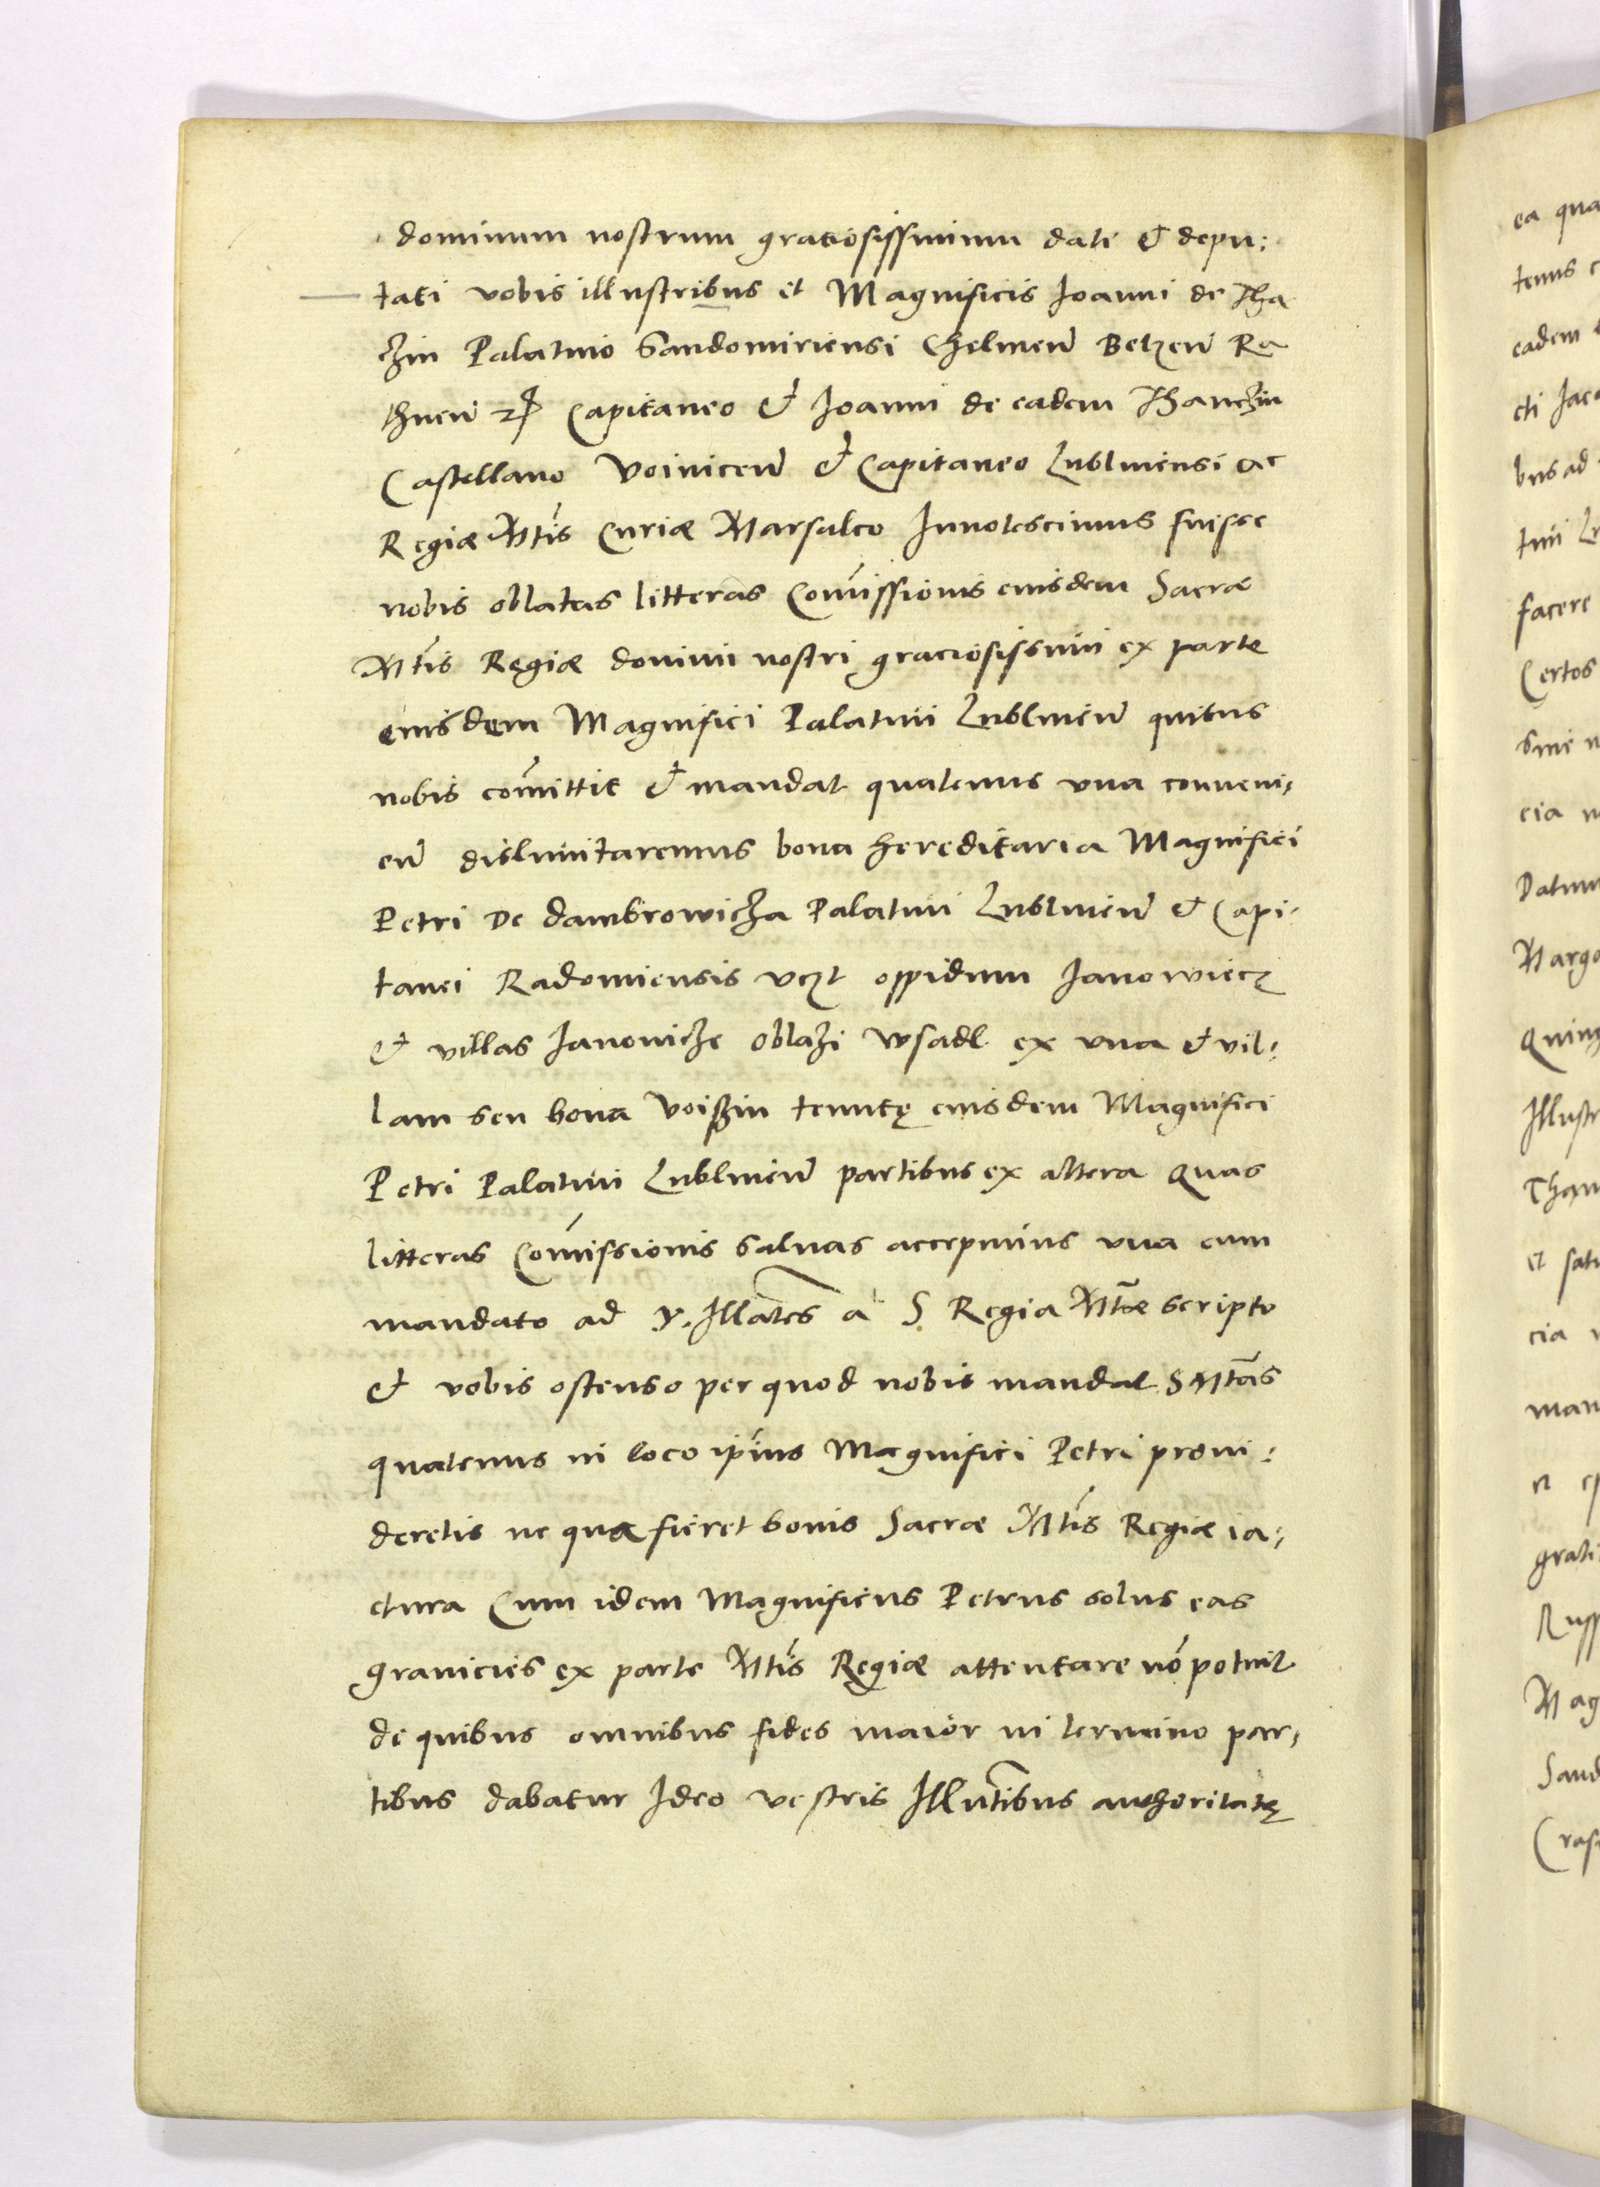 dominum nostrum gratiosissimum dati & depu:
tati vobis illustribus et Magnificis Joanni de Tha
czin Palatino Sandomiriensi Chelmen̄ Belzen̄ Ra
thnen̄ Capitaneo & Joanni de eadem Thanczin
Castellano Voinicen̄ & Capitaneo Lublinensi ac
Regiæ Mtis Curiæ Marsalco Innotescimus fuisse
nobis oblatas litteras Com̄issionis eiusdem Sacræ
Mtis Regiæ domini nostri graciosissimi ex parte
eiusdem Magnifici Palatini Lublinen̄ quibus
nobis com̄ittit & mandat quatenus una conveni,
en̄ dislimitaremus bona hereditaria Magnifici
Petri De dambrowicza Palatini Lublinen̄ & Capi-
tanei Radomiensis vczt oppidum Janowiecz
& villas Janoviche oblazi wsadl ex una & vil:
lam seu bona Voiszin tenutę eiusdem Magnifici
Petri Palatini Lublinen̄ partibus ex altera Quas
litteras Com̄issionis salvas accepimus una cum
mandato ad V. Illates a S. Regia Mtæ scripto
& vobis ostenso per quod nobis mandat S Mtas
quatenus in loco ip̄ius Magnifici Petri provi:
deretis ne qua fieret bonis Sacræ Mtis Regiæ ia:
ctura Cum idem Magnificus Petrus solus eas
granicies ex parte Mtis Regiæ attentare nō potuit
de quibus omnibus fides maior in termino par,
tibus dabatur Ideo vestris Illūtibus authoritatę
ea qua
tenus c
eadem
cti Jaco
bus ad
tini Lu
facere
Certos
sine n
cia n
Datum
Margo
Quinq
Illustr
Than
et satu
cia
man
gratio
Russ
Mag
Sand
Cras